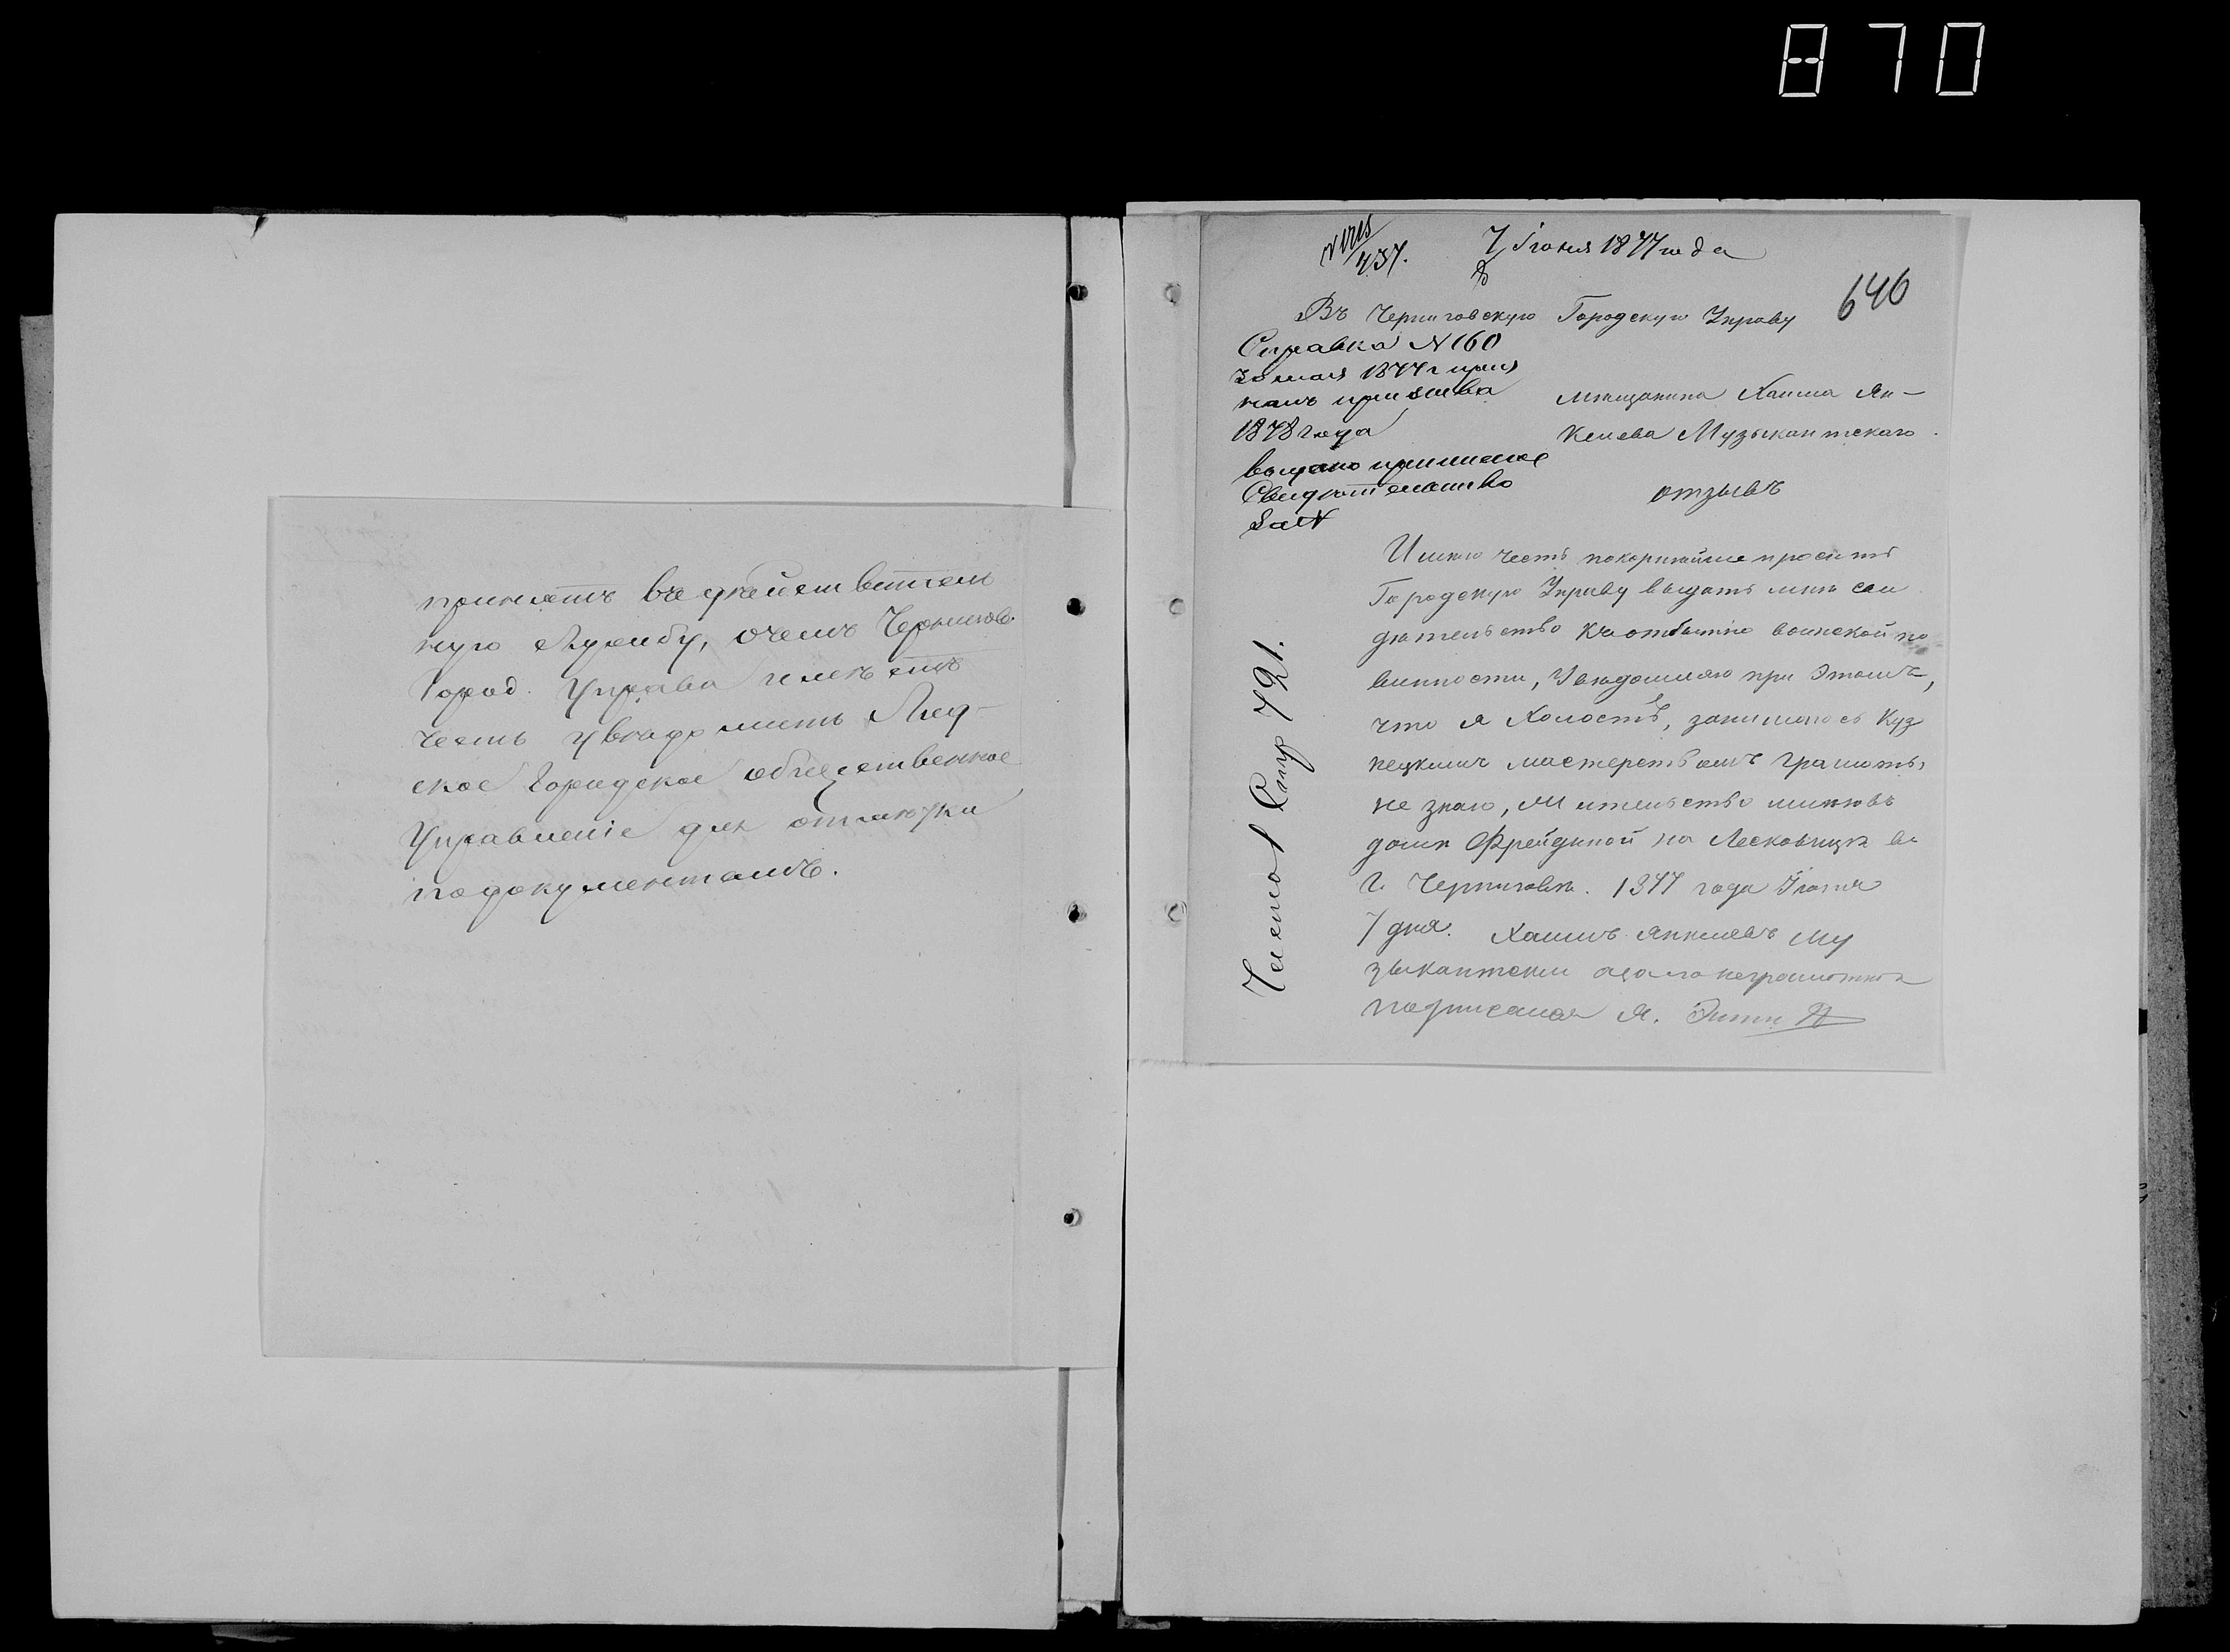 870
принятъ въ действитель
ную службу, о чемъ Чернигов.
Город. Управа имеетъ
честь уведомить Лид-
ское Городское общественное
Управленіе для отметки
по документамъ.
7 Іюня 1877 года
437.
646
Въ Черниговскую Городскую Управу
Справка N 160
30 мая 1877 г.
призыва
1878 года
выдано приписное
Свидѣтельство
за N
мѣщанина Хаима Ян-
келева Музыкантскаго
отзывъ
Имѣю честь покорнѣйше просить
Городскую Управу выдать мнѣ сви
дѣтельство къ отбытію воинской по
винности, Увѣдомляю при этомъ,
что я Холостъ, занимаюсь Куз
нецкимъ мастерствомъ грамоты
не знаю, Жительство имѣю въ
домѣ Фрейдиной на Лесковицѣ въ
г. Черниговѣ. 1877 года Іюня
7 дня. Хаимъ Янкелевъ Му
зыкантскій а за него неграмотнаго
подписался Я.
Чистол Стр 721.